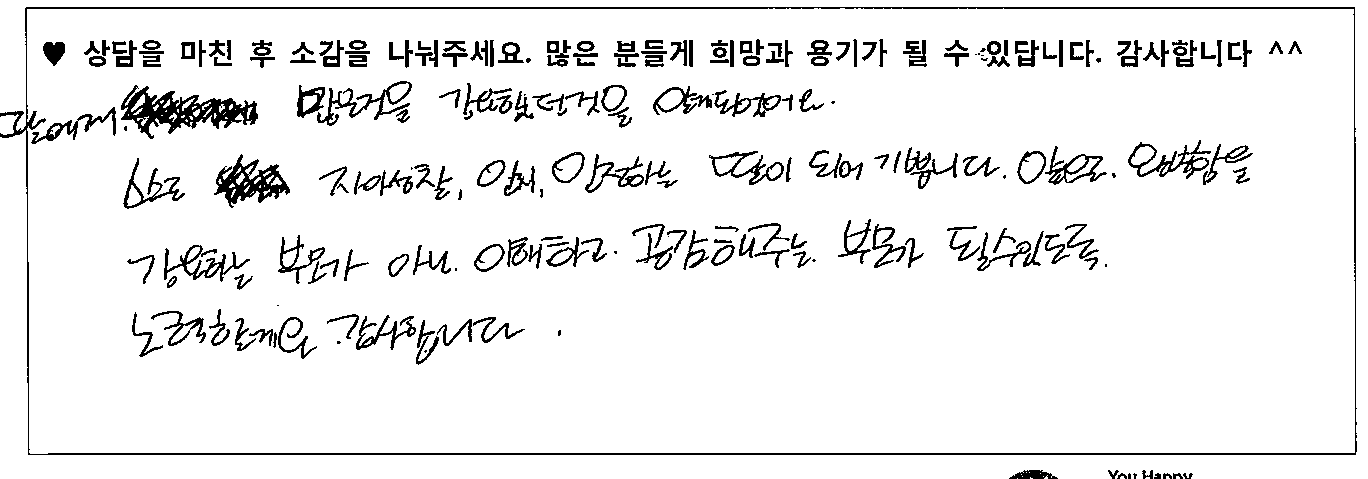 ♥ 상담을 마친 후 소감을 나눠주세요. 많은 분들게 희망과 용기가 될 수 있답니다. 감사합니다 ^^
딸에게 많은것을 강요했던것을 알게되었어요.
스스로 자아성찰, 인지, 인정하는 딸이 되어 기쁩니다. 앞으로. 완벽함을
강요하는 부모가 아닌. 이해하고. 공감해주는. 부모가 될수있도록.
노력할게요. 감사합니다.
You Happy